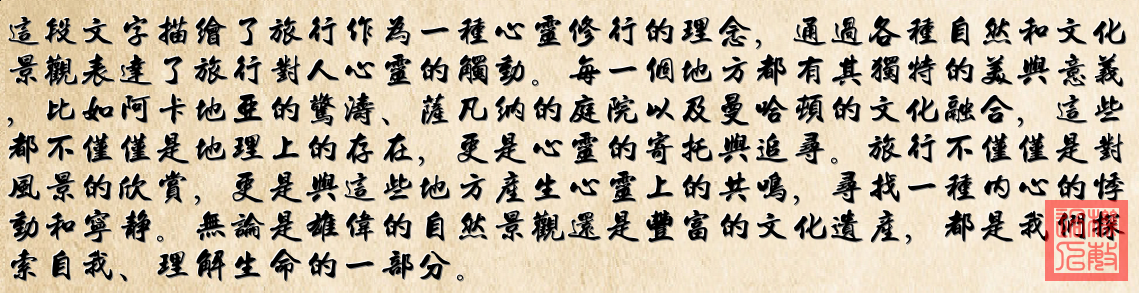 這段文字描繪了旅行作為一種心靈修行的理念，通過各種自然和文化
景觀表達了旅行對人心靈的觸動。每一個地方都有其獨特的美與意義
，比如阿卡地亞的驚濤、薩凡納的庭院以及曼哈頓的文化融合，這些
都不僅僅是地理上的存在，更是心靈的寄托與追尋。旅行不僅僅是對
風景的欣賞，更是與這些地方產生心靈上的共鳴，尋找一種內心的悸
動和寧靜。無論是雄偉的自然景觀還是豐富的文化遺產，都是我們探
索自我、理解生命的一部分。